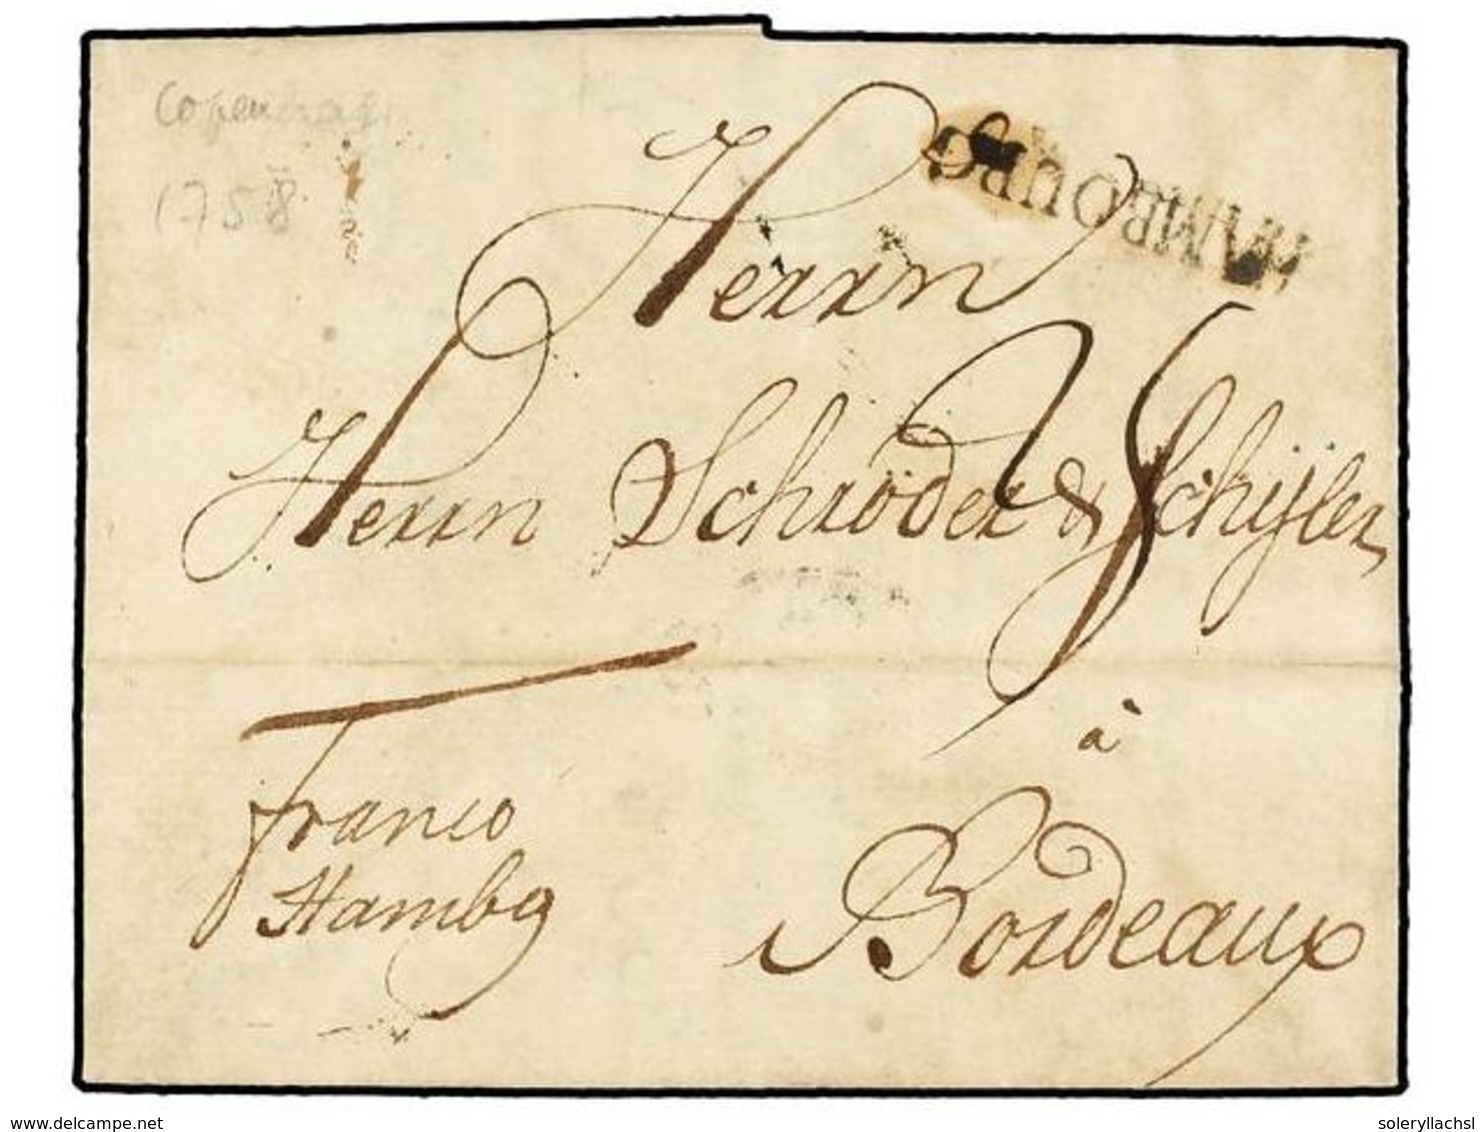 Copenhagen
1758
HAMBOURG
Herrn
Herrn Schröder & Schijler
à
Bordeaux
franco
Hambg
delcampe.net
soleryllachsl